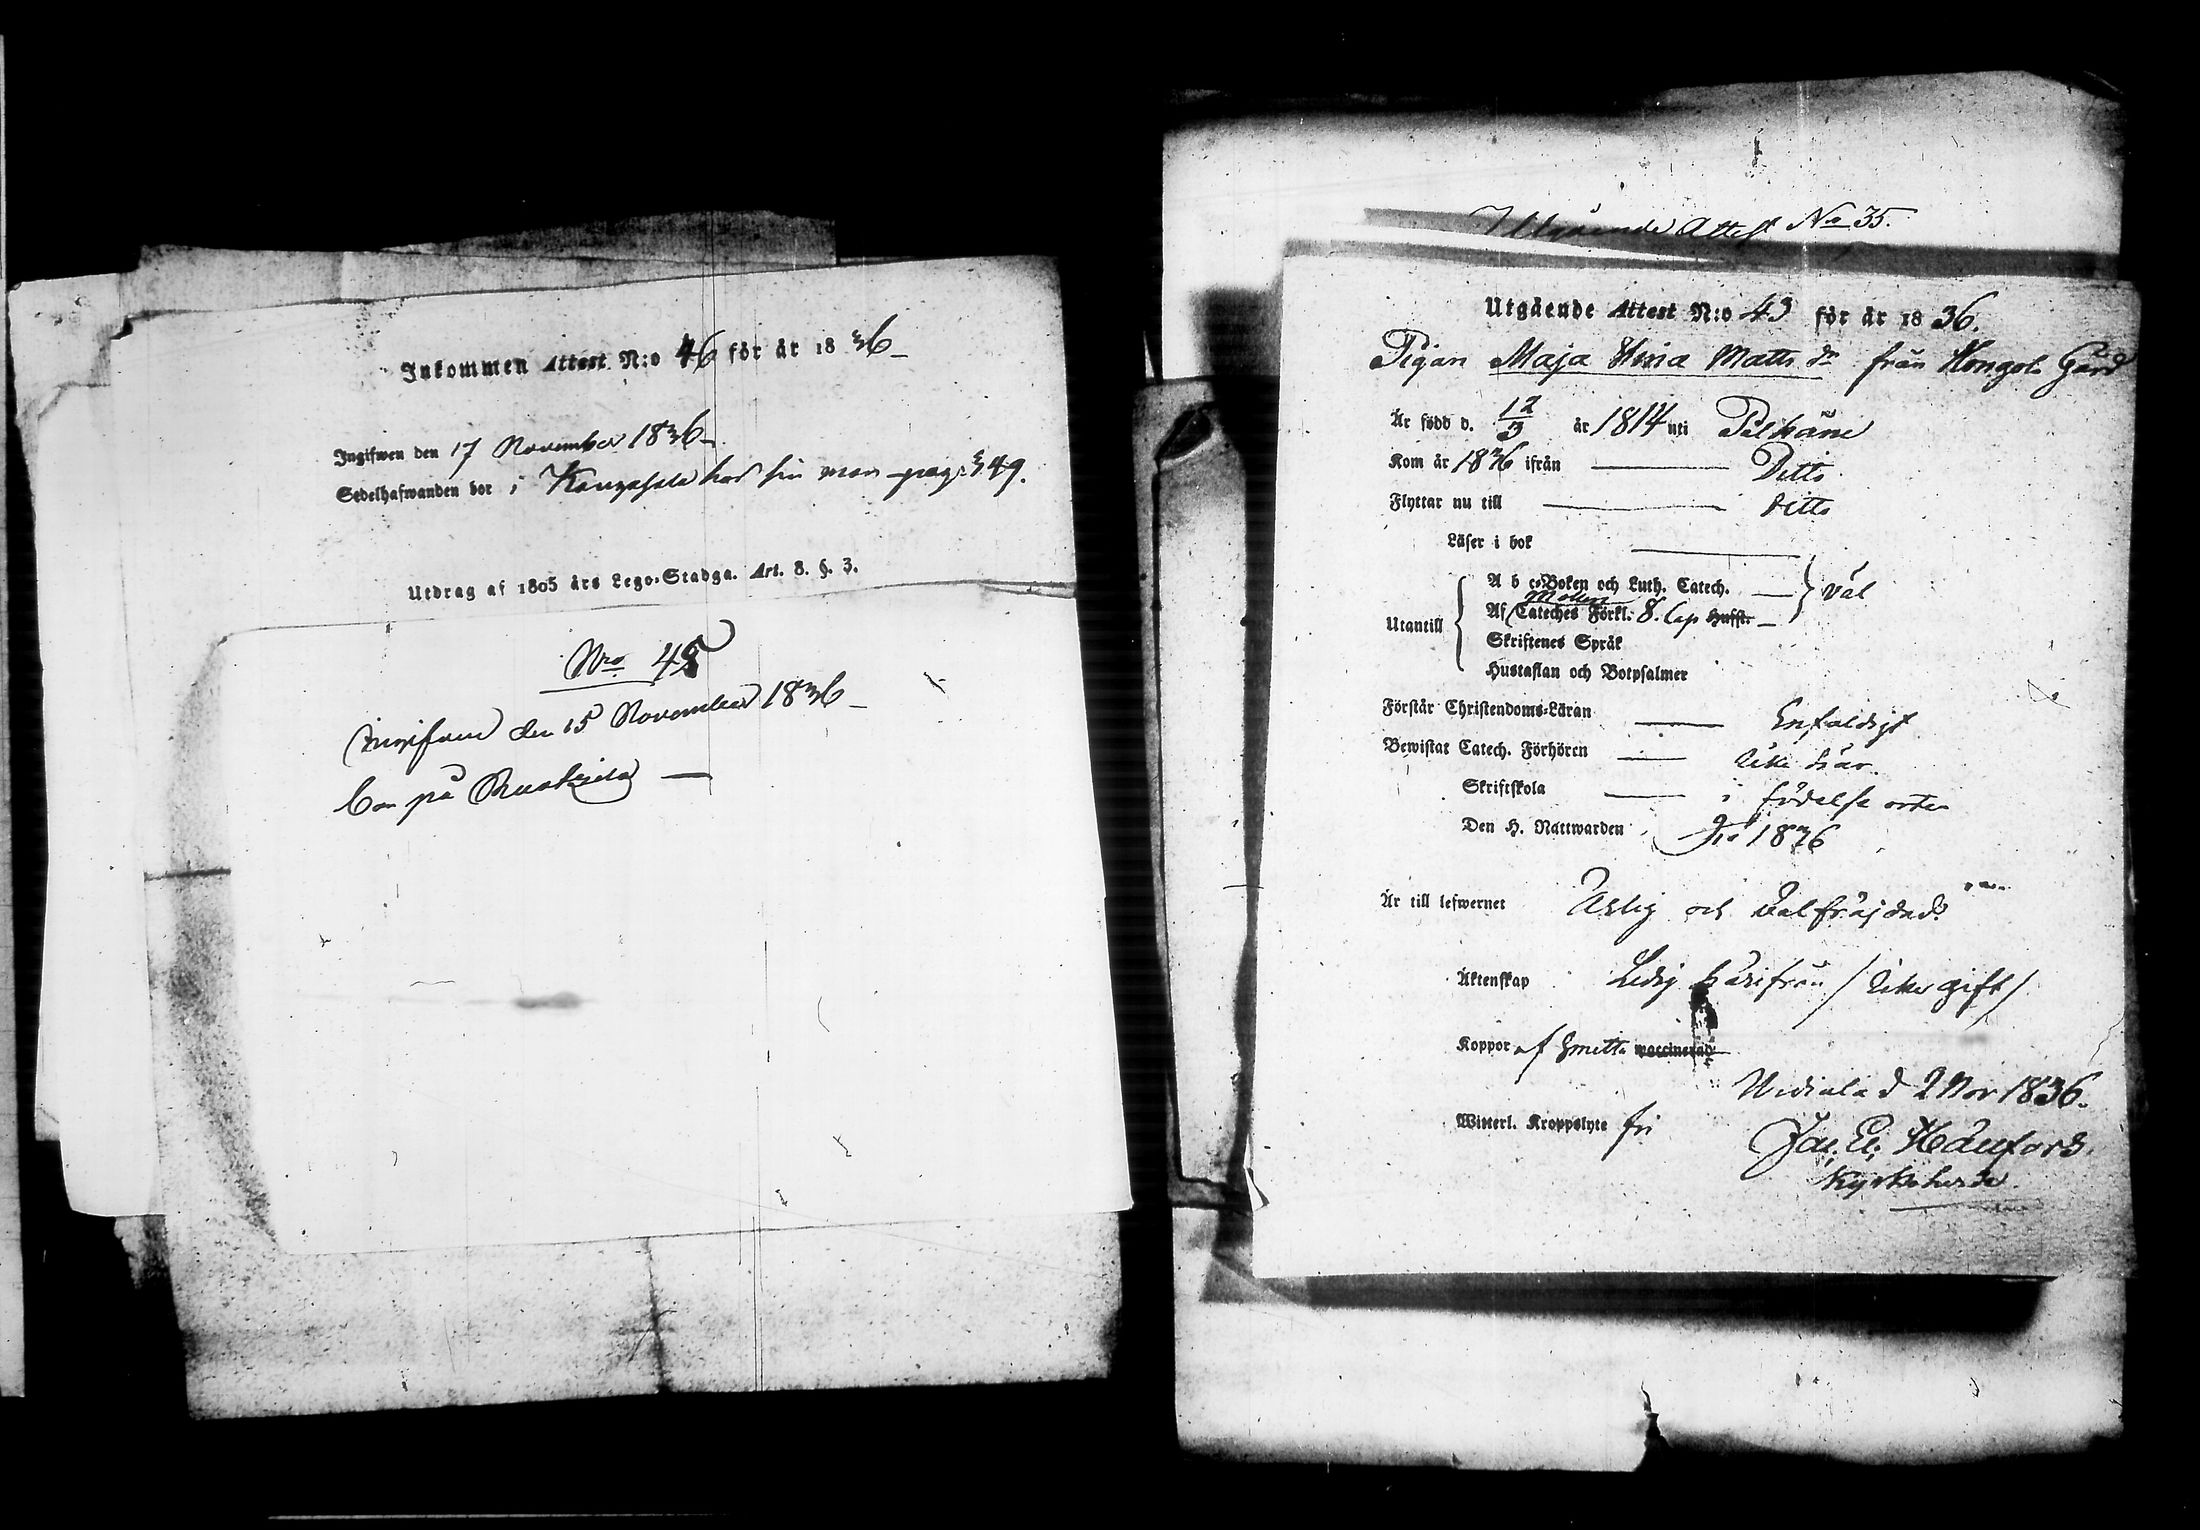 Inkommen Attest N:o 46 för år 1836
Ingifwen den 17 November 1836
Sedelhafwanden bor i Kangasala hos sin man pag: 349.
Utdrag af 1805 års Lego-Stadga. Art. 8. §. 3.
Nro 45
ingifven den 15 November 1836
bor på
Utgående Attest No 35.
Utgående Attest N:o 43 för år 1836.
Pigan Maja Stina Matts dr från Kongola Gård
Är född d. 12/3 år 1814 uti Pälkäne
Kom år 1836 ifrån Ditto
Flyttar nu till Ditto
Läser i bok
A b c-Boken och Luth. Catech. väl
Utantill
Af Cateches Förkl. 8. Cap Hufst.
Skriftenes Språk
Hustaflan och Botpsalmer
Förstår Christendoms-Läran Enfaldigt
Bewistat Catech. Förhören icke här.
Skriftskola i födelse orten
Den H. Nattwarden 1836
Är till lefwernet Ärlig och välfräjdad.
Äktenskap Ledig härifrån / icke gift /
Koppor af Smitta waccinerad
Urdiala d 2 Nov 1836.
Witterl. Kroppslyte fri
Jac. El. Hänfors.
Kyrkoherde.